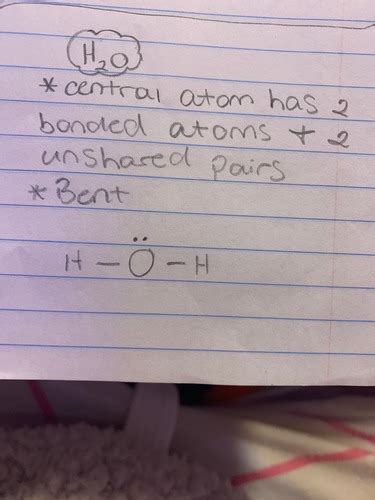 H₂O
* central atom has 2
bonded atoms + 2
unshared pairs
* Bent
H - Ö - H